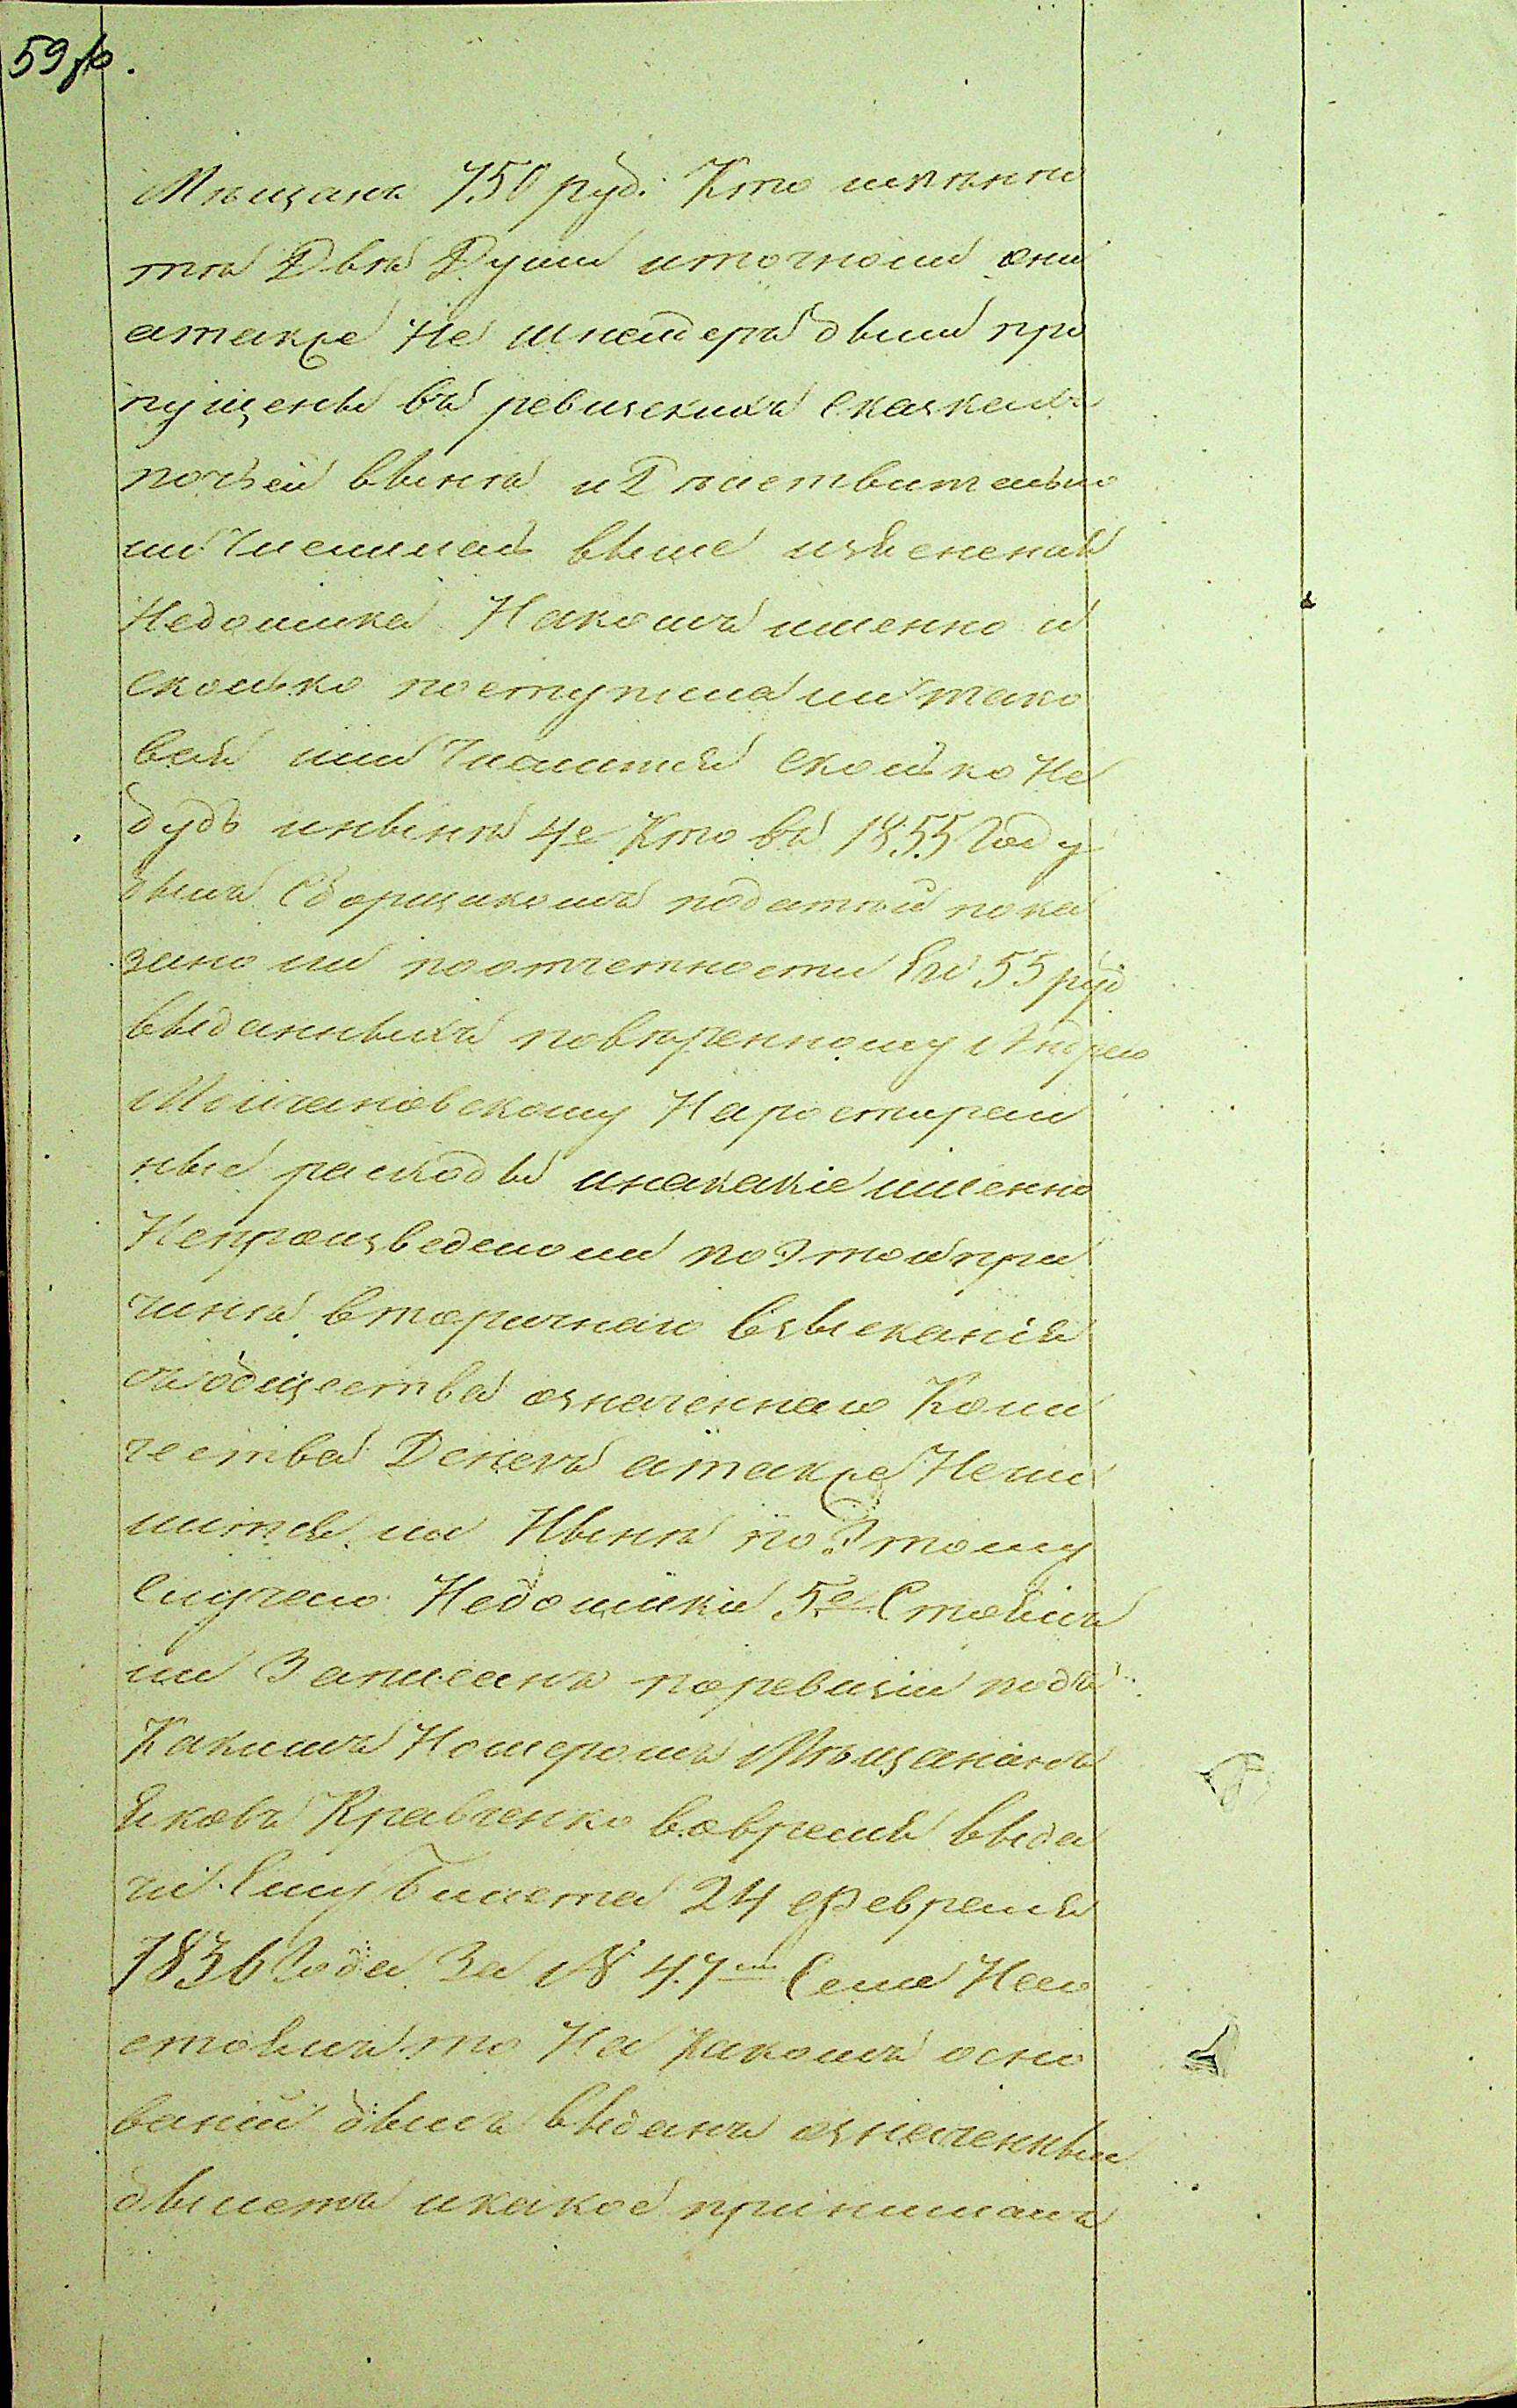 59 об.
Мѣщанъ 750 руб. Кто именно
тѣ Двѣ Души и точноли они
атакже Не Шнейдеръ были про
пущены въ ревизскихъ сказкахъ
почьей винѣ и Дѣйствительно
ли Числилась выше изъясненая
Недоимка Накомъ именно и
сколько поступилали тако
вая или Числится сколько Не
будь инынѣ 4е Кто въ 1855 Году
былъ Сборщикомъ податей пока
зано ли поотчетности Его 55 руб
выданныхъ повѣренному Андрею
Молчановскому На
ные расходы инакакіе именно
Непроизведено ли по Этой при
чинѣ вторичнаго взысканія
съобщества означеннаго Коли
чества Денегъ атакже Нечи
лится ли Нынѣ по Этому
Случаю Недоимки 5е Стоялъ
ли Записанъ поревизіи подъ
Какимъ Номеромъ Мѣщанинъ
Яковъ Кравченко вовремя выда
чи Ему Билета 24 Февраля
1836 Года За № 47 Если Нес
стоялъ то На Какомъ осно
ваніи былъ выданъ означенный
былетъ икакое принималъ